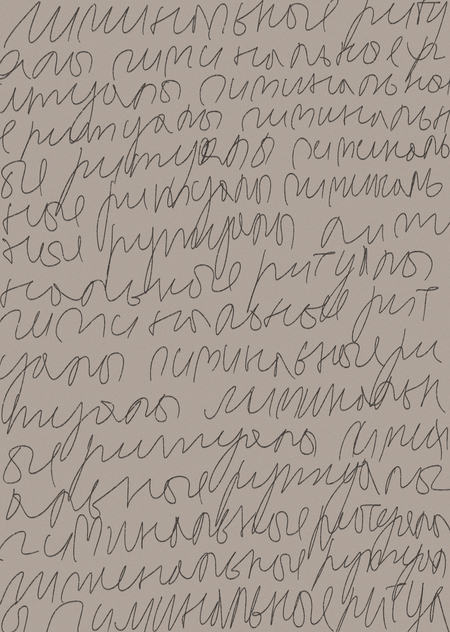 лиминальные риту
алы лиминальные р
итуалы лиминальны
е ритуалы лиминальн
ые ритуалы лиминаль
ные ритуалы лиминаль
ные ритуалы лими
нальные ритуалы
лиминальные рит
уалы лиминальные ри
туалы лиминальн
ые ритуалы лимин
альные ритуалы
лиминальные ритуалы
лиминальные ритуал
ы лиминальные ритуа